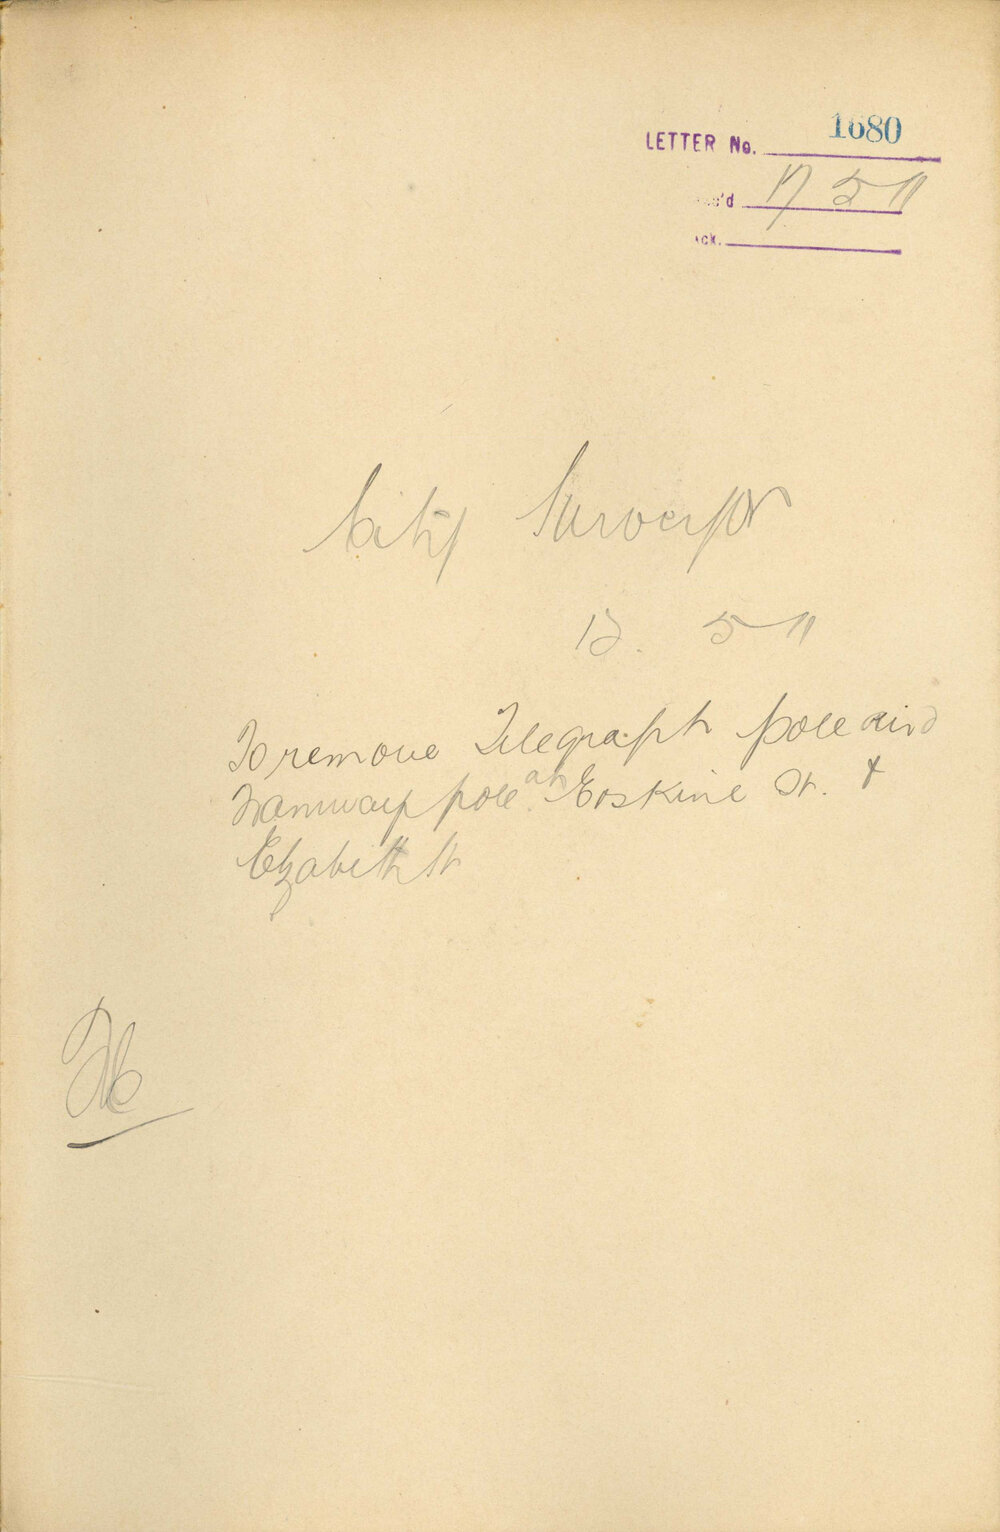 LETTER No. 1680
Rec'd 17 5 11
Ack.
City Surveyor
12. 5 11
To remove Telegraph pole and
Tramway pole at Erskine St. &
Elzabeth St